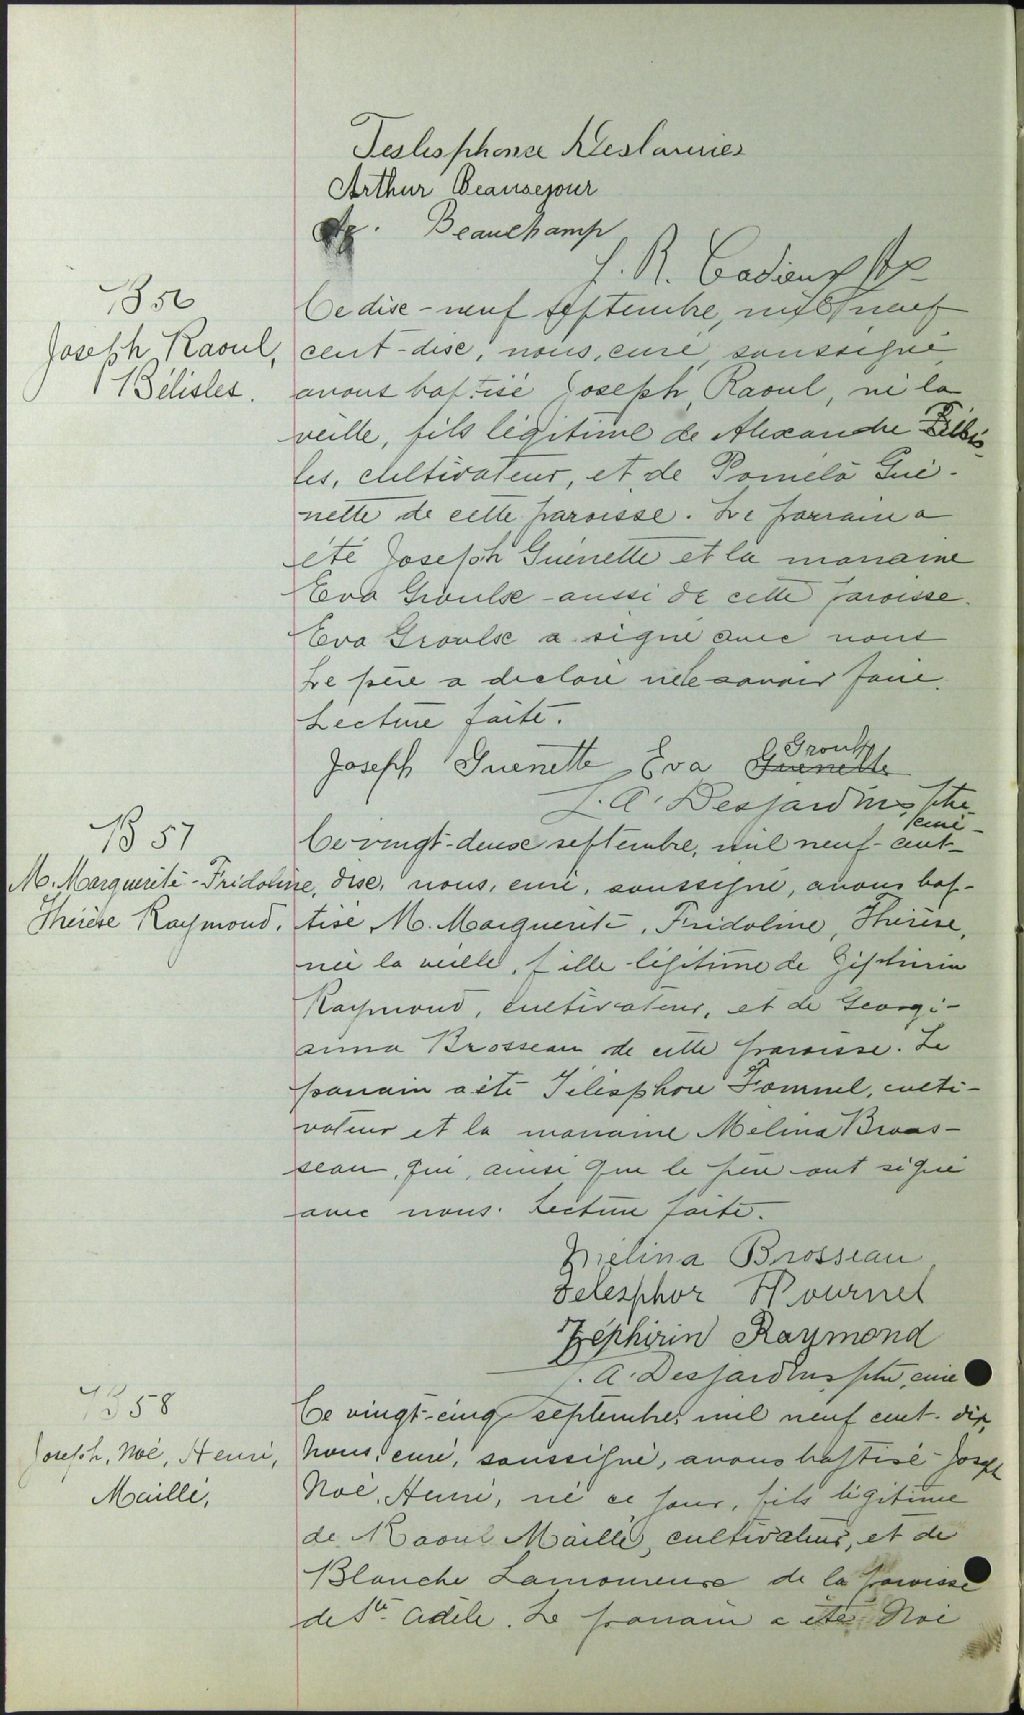 Teslesphore Deslauriers
Arthur Beausejour
Az. Beauchamp
J. R. Cadieux Ptre
B 56
Joseph Raoul,
Bélisles.
Ce dix-neuf septembre, mil neuf
cent-dix, nous, curé, soussigné,
avons baptisé Joseph, Raoul, né la
veille, fils légitime de Alexandre Bélis-
les, cultivateur, et de Poméla Gué-
nette de cette paroisse. Le parrain a
été Joseph Guénette et la marraine
Eva Groulx aussi de cette paroisse.
Eva Groulx a signé avec nous
Le père a déclaré ne le savoir faire.
Lecture faite.
Joseph Guenette Eva Groulx Guenette
L. A. Desjardins, ptre
curé
B 57
M. Marguerite-Fridoline,
Thérèse Raymond.
Ce vingt-deux septembre, mil neuf-cent-
dix, nous, curé, soussigné, avons bap-
tisé M. Marguerite, Fridoline, Thérèse,
née la veille, fille légitime de Zéphirin
Raymond, cultivateur, et de Georgi-
anna Brosseau de cette paroisse. Le
parrain a été Télésphore Fournel, culti-
vateur et la marraine Mélina Bros-
seau, qui, ainsi que le père ont signé
avec nous. Lecture faite.
Mélina Brosseau
Telesphor Fournel
Zéphirin Raymond
L. A. Desjardins ptre, curé
B 58
Joseph, Noé, Henri,
Maillé,
Ce vingt-cinq septembre, mil neuf cent-dix,
nous, curé, soussigné, avons baptisé Joseph
Noé, Henri, né ce jour, fils légitime
de Raoul Maillé, cultivateur, et de
Blanche Lamoureux de la paroisse
de Ste Adèle. Le parrain a été Noé